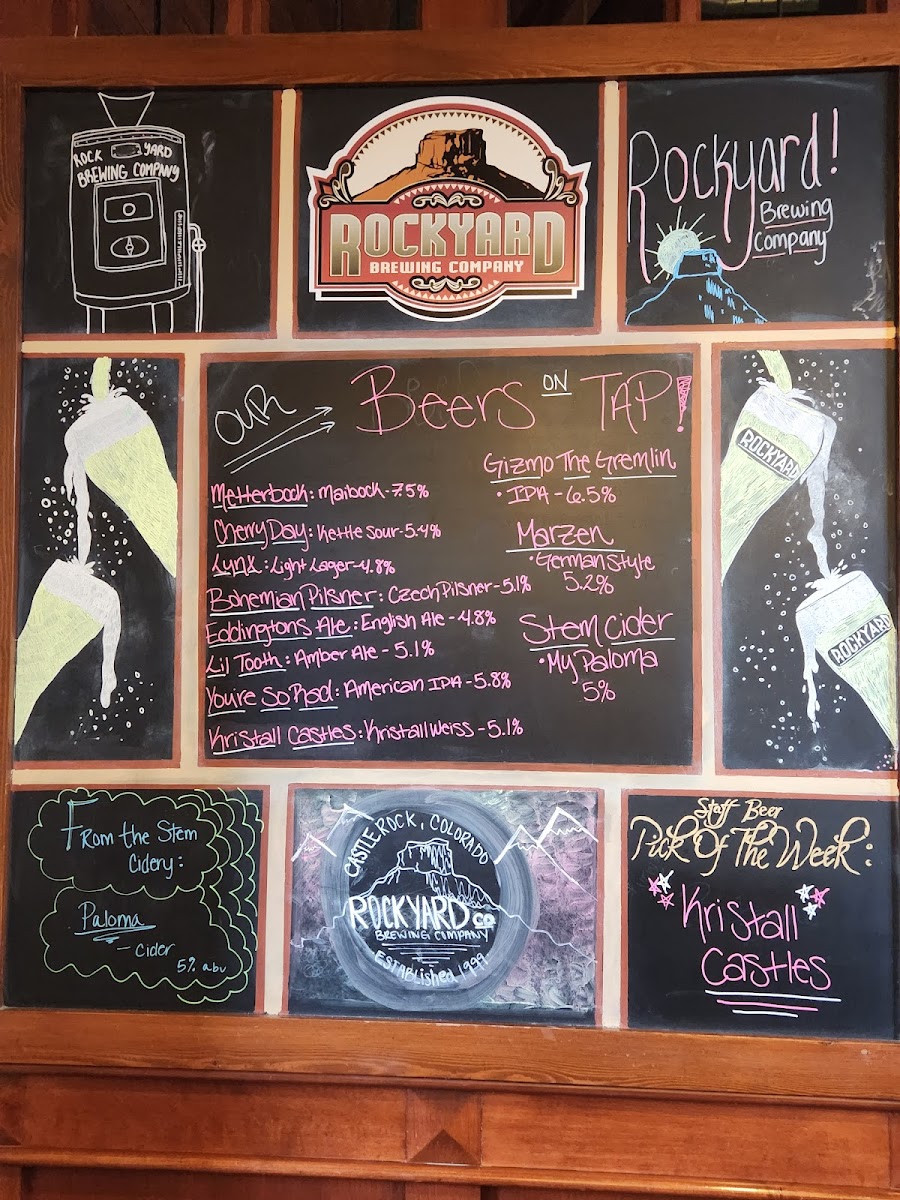 ROCK YARD
BREWING COMPANY
ROCKYARD
BREWING COMPANY
Rockyard!
Brewing
Company
OUR Beers ON TAP!
Metterbock: Maibock - 7.5%
Cherry Day: Kettle Sour - 5.4%
Lynx: Light Lager - 4.8%
Bohemian Pilsner: Czech Pilsner - 5.1%
Eddingtons Ale: English Ale - 4.8%
Lil Tooth: Amber Ale - 5.1%
Youre So Rad: American IPA - 5.8%
Kristall Castles: Kristallweiss - 5.1%
Gizmo The Gremlin
• IPA - 6.5%
Marzen
• German Style
5.2%
Stem Cider
• My Paloma
5%
ROCKYARD
ROCKYARD
From the Stem
Cidery:
Paloma
- cider
5% abv
CASTLE ROCK, COLORADO
ROCKYARD CO
BREWING COMPANY
ESTABLISHED 1999
Staff Beer
Pick Of The Week:
Kristall
Castles